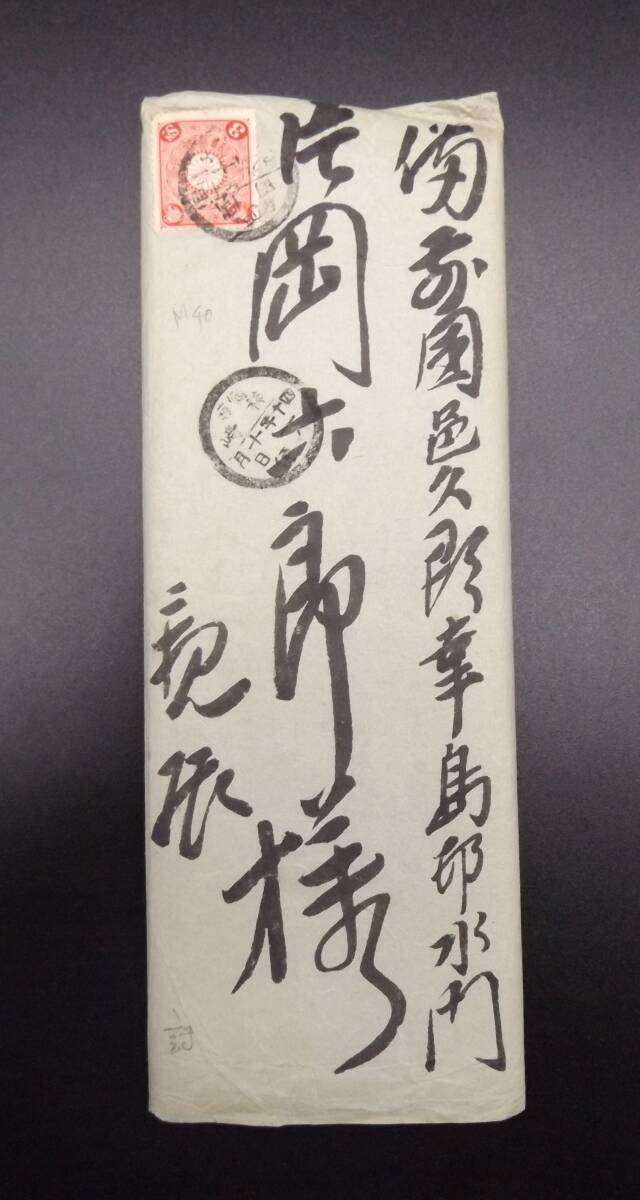 備前國邑久郡幸島邨水門
片岡六郎様
親展
M40
四十年十一月